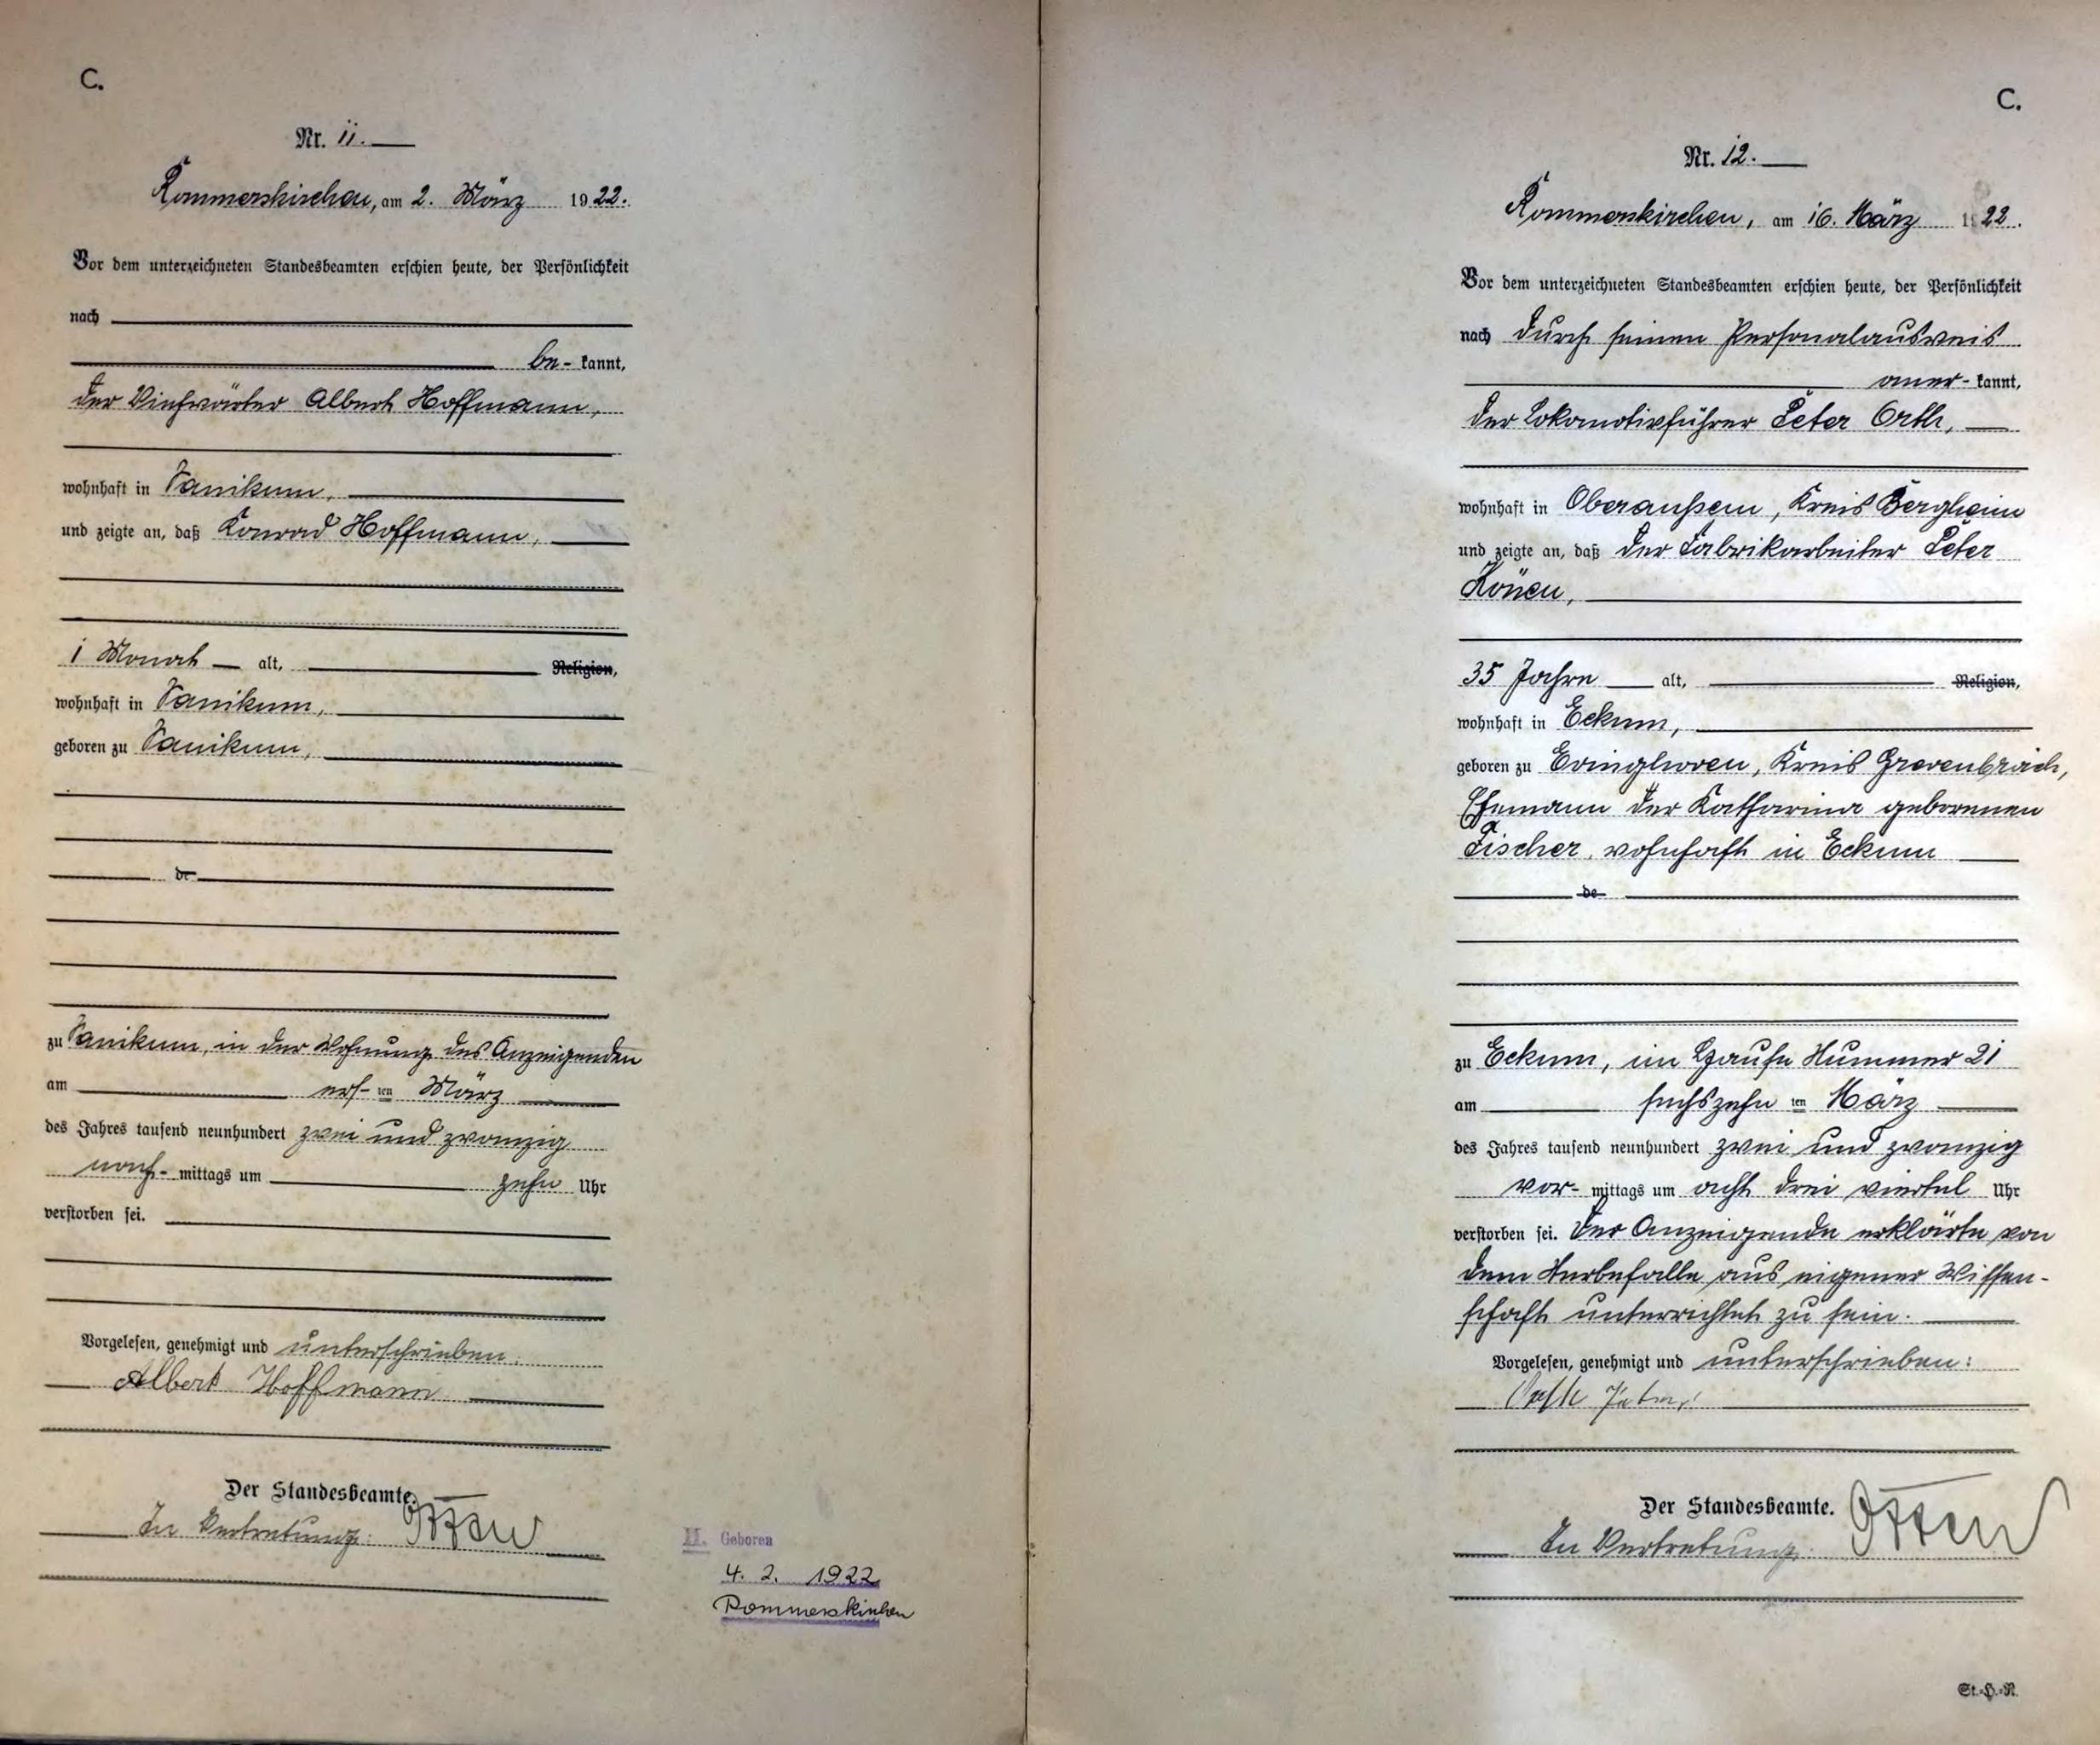 C.
Nr. 11.
Rommerskirchen, am 2. März 1922.
Vor dem unterzeichneten Standesbeamten erschien heute, der Persönlichkeit
nach
be- kannt,
der Viehwärter Albert Hoffmann,
wohnhaft in Vanikum,
und zeigte an, daß Konrad Hoffmann,
1 Monat alt, Religion,
wohnhaft in Vanikum,
geboren zu Vanikum,
de
zu Vanikum, in der Wohnung des Anzeigenden
am ers- ten März
des Jahres tausend neunhundert zwei und zwanzig
nach- mittags um zehn Uhr
verstorben sei.
Vorgelesen, genehmigt und unterschrieben.
Albert Hoffmann
Der Standesbeamte.
In Vertretung: Otten
H. Geboren
4. 2. 1922
Rommerskirchen
C.
Nr. 12.
Rommerskirchen, am 16. März 1922.
Vor dem unterzeichneten Standesbeamten erschien heute, der Persönlichkeit
nach durch seinen Personalausweis
aner- kannt,
der Lokomotivführer Peter Orth,
wohnhaft in Oberaußem, Kreis Bergheim
und zeigte an, daß der Fabrikarbeiter Peter
Könen,
35 Jahre alt, Religion,
wohnhaft in Eckum,
geboren zu Evinghoven, Kreis Grevenbroich,
Ehemann der Katharina geborenen
Fischer, wohnhaft in Eckum
de
zu Eckum, im Hause Nummer 21
am sechszehn ten März
des Jahres tausend neunhundert zwei und zwanzig
vor- mittags um acht drei viertel Uhr
verstorben sei. Der Anzeigende erklärte von
dem Sterbefalle aus eigener Wissen-
schaft unterrichtet zu sein.
Vorgelesen, genehmigt und unterschrieben:
Orth Peter
Der Standesbeamte.
In Vertretung: Otten
St.-H.-N.